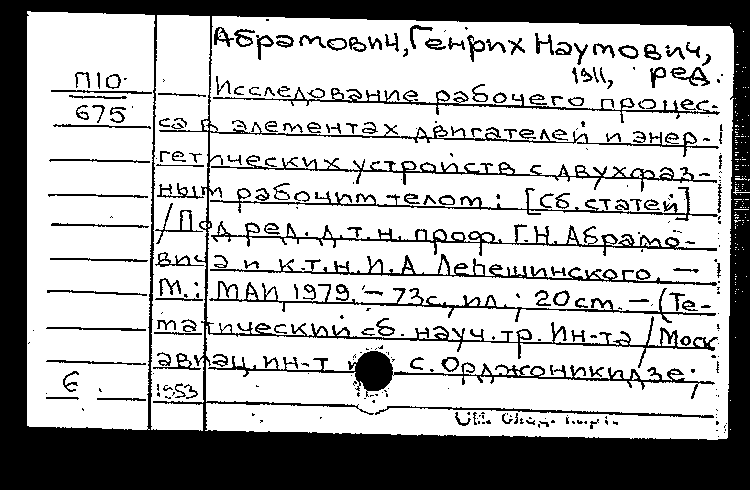 Абрамович, Генрих Наумович,
1911, ред.
П10
675
Исследование рабочего процес-
са в элементах двигателей и энер-
гетических устройств с двухфаз-
ным рабочим телом: [Сб. статей]
/Под ред. д.т.н. проф. Г.Н. Абрамо-
вича и к.т.н. И.А. Лепешинского. —
М.: МАИ, 1979. — 73с., ил.; 20см. — (Те-
матический сб. науч. тр. Ин-та / Моск
авиац. ин-т с. Орджоникидзе;
6.
1953